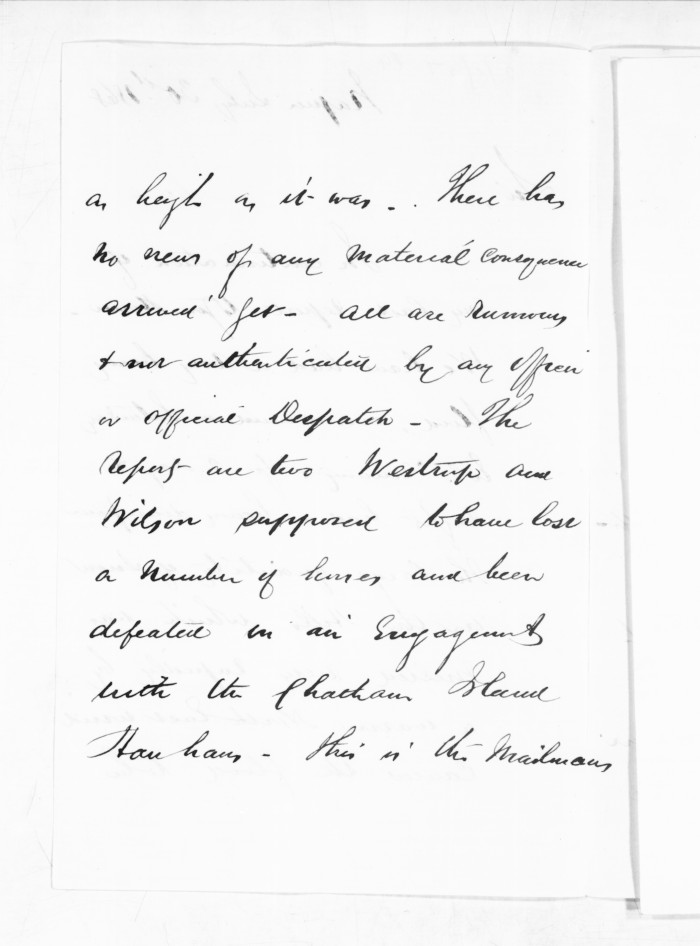 as heigh as it was - . There has
no news of any material consequence
arrived yet - all are rumours
& not authenticated by any officer
or official Despatch - The
report are two Westrup and
Wilson supposed to have lost
a number of horses and been
defeated in an Engagement
with the Chatham Island
Hauhaus - This is the Mailmans